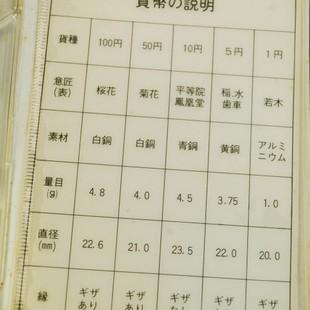 貨幣の説明
貨種 100円 50円 10円 5円 1円
意匠(表) 桜花 菊花 平等院鳳凰堂 稲.水歯車 若木
素材 白銅 白銅 青銅 黄銅 アルミニウム
量目(g) 4.8 4.0 4.5 3.75 1.0
直径(mm) 22.6 21.0 23.5 22.0 20.0
縁 ギザあり ギザあり ギザ ギザ ギザ